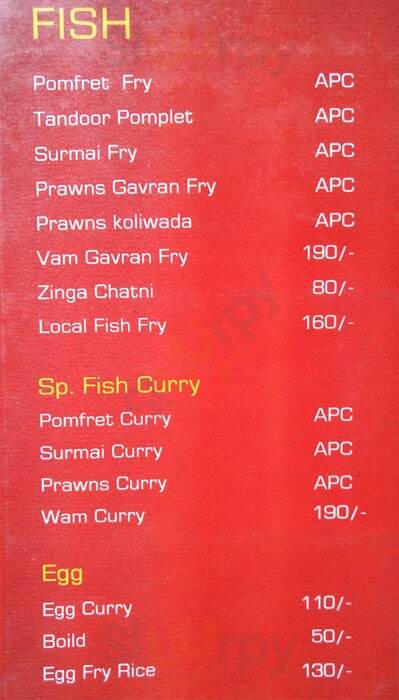 FISH
Pomfret Fry APC
Tandoor Pomplet APC
Surmai Fry APC
Prawns Gavran Fry APC
Prawns koliwada APC
Vam Gavran Fry 190/-
Zinga Chatni 80/-
Local Fish Fry 160/-
Sp. Fish Curry
Pomfret Curry APC
Surmai Curry APC
Prawns Curry APC
Wam Curry 190/-
Egg
Egg Curry 110/-
Boild 50/-
Egg Fry Rice 130/-